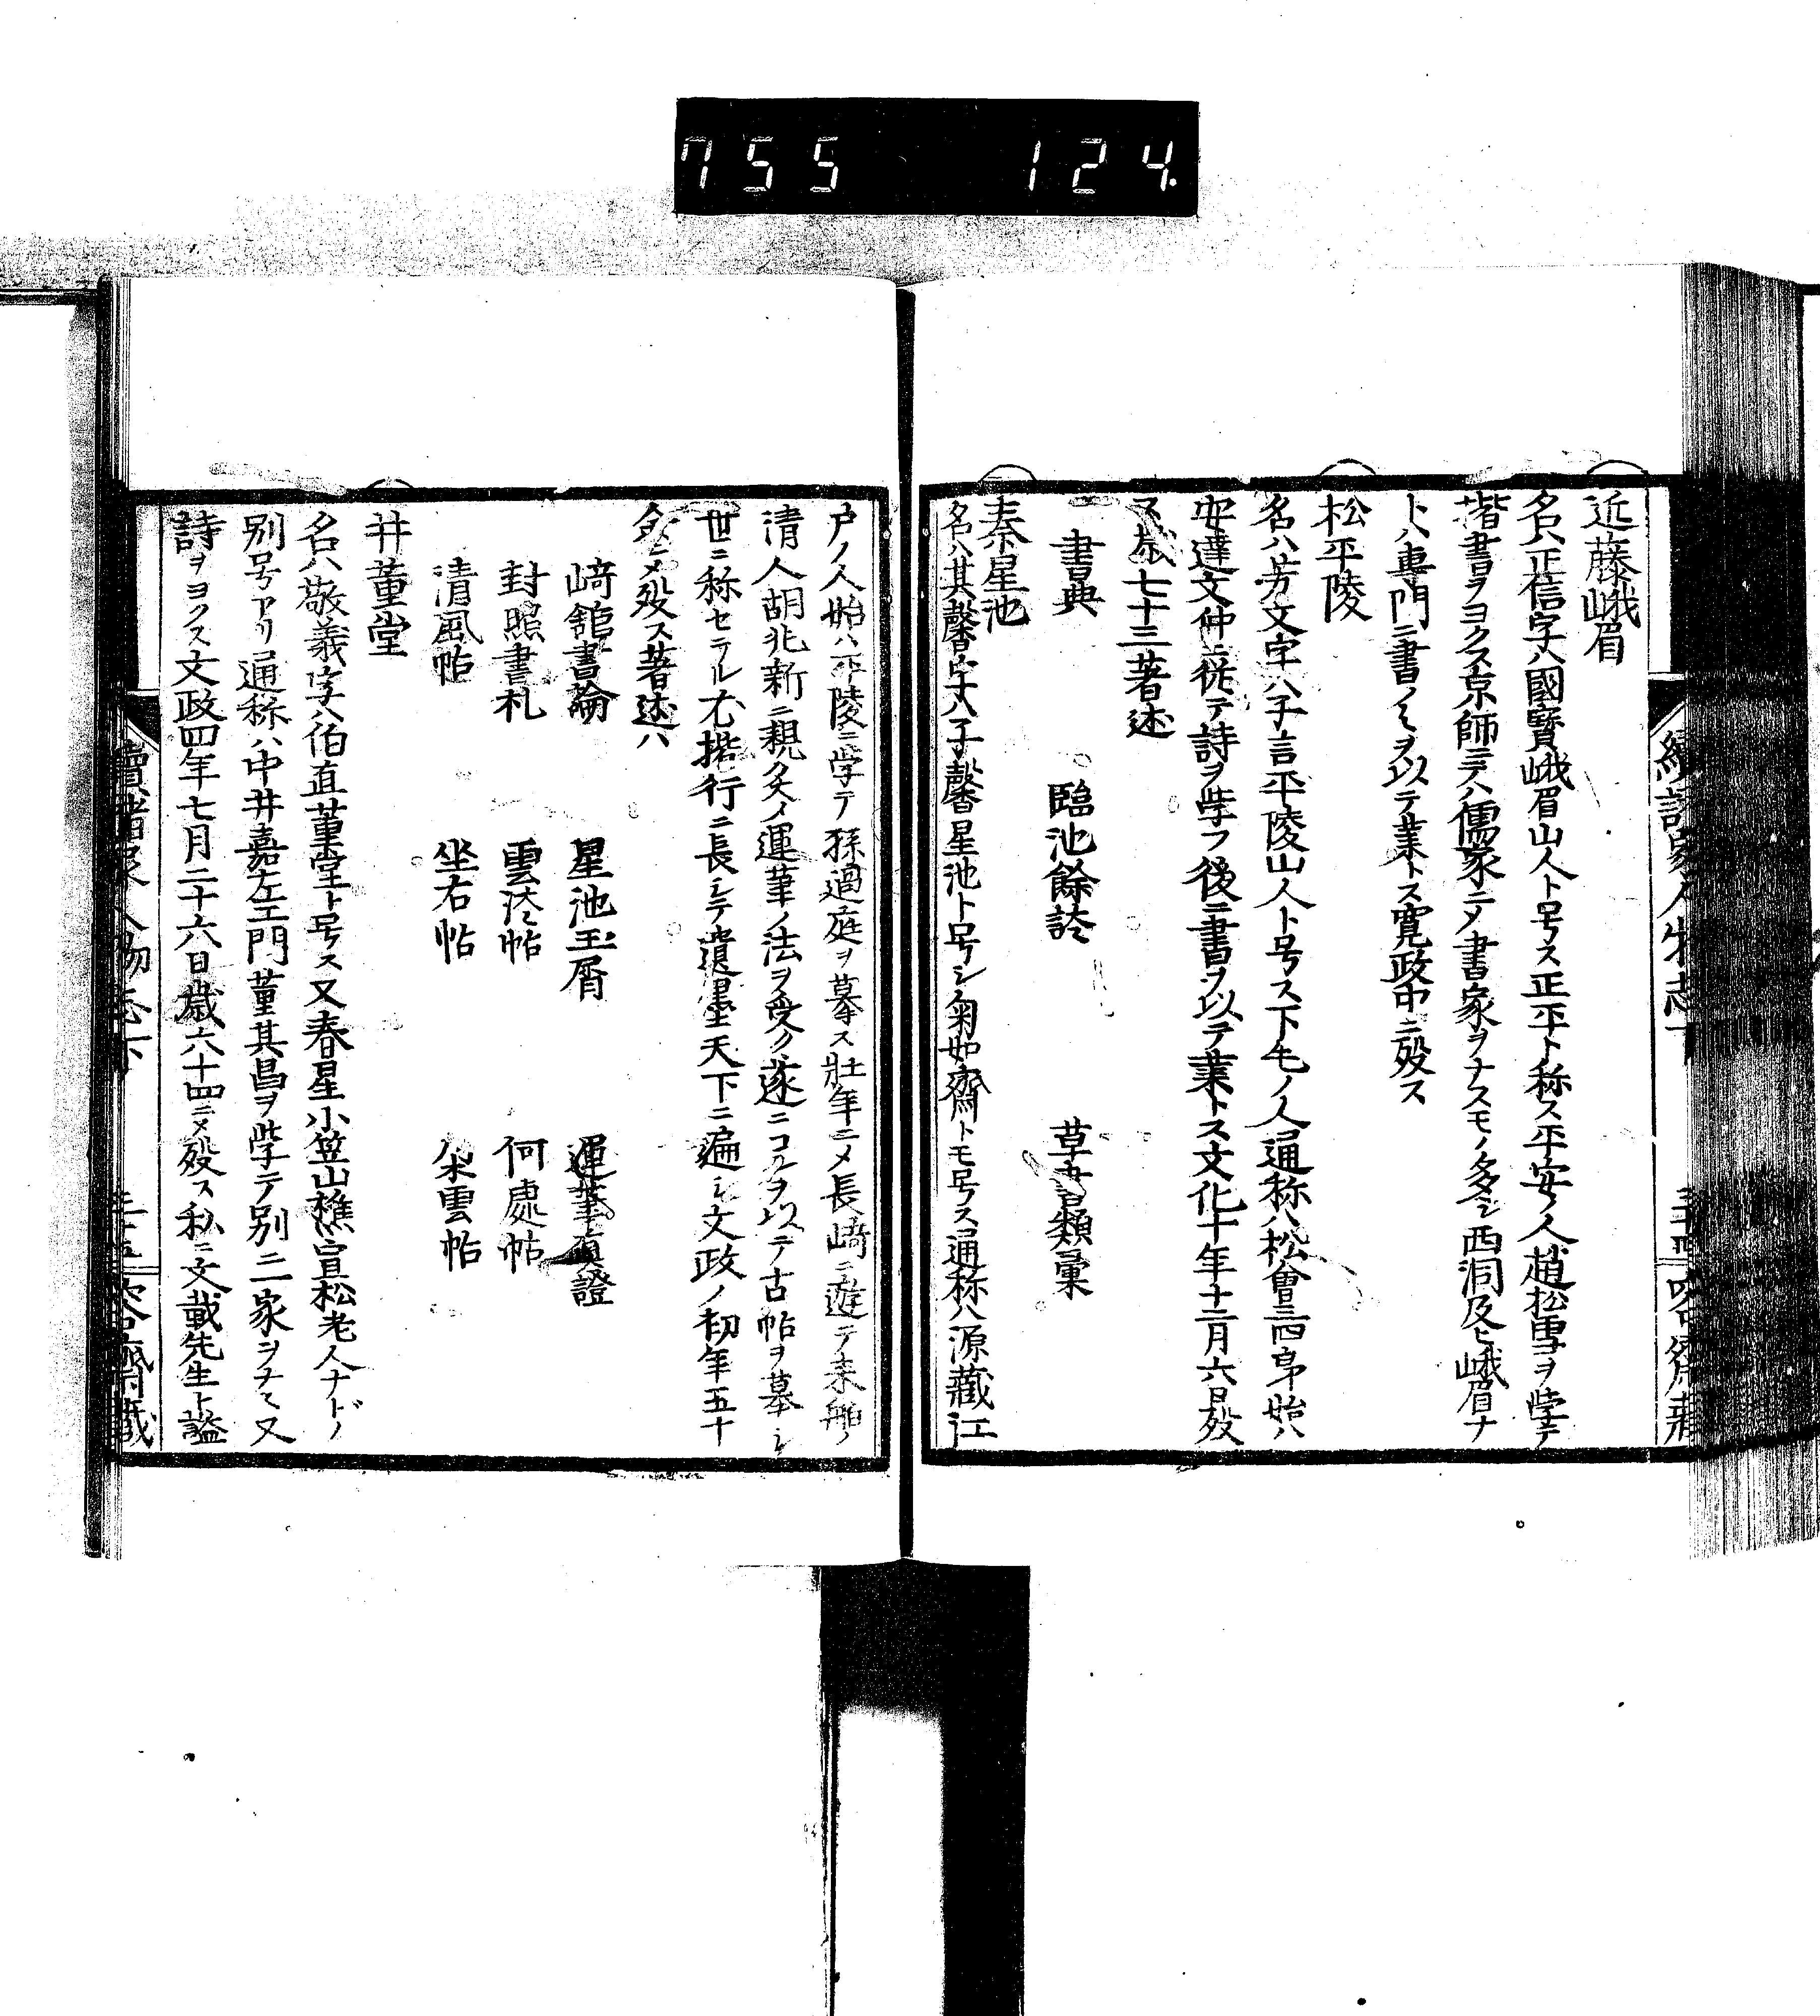 755 124
近藤峨眉
名ハ正信字ハ國寶峨眉山人ト号ス正平トノ称ス平安ノ人趙松雪ヲ學テ
楷書ヲヨクス京師ニテハ儒家ニメ書家ヲナスモノ多シ西洞及ヒ峨眉ナ
トハ專門ニ書ノミヲ以テ業トス寛政中ニ殁ス
松平陵
名ハ芳文字ハ子言平陵山人ト号ス下毛ノ人通称ハ松會三四郎始ハ
安達文仲ニ從テ詩ヲ學フ後ニ書ヲ以テ業トス文化十年十二月六日殁
ス歳七十三著述
書典 臨池餘談 草書類彙
秦星池
名ハ其馨字ハ子馨星池ト号シ匊如齋トモ号ス通称ハ源藏江
戸ノ人始ハ平陵ニ学テ孫過庭ヲ摹ス壯年ニメ長﨑ニ遊テ来舶ノ
清人胡兆新ニ親炙メ運筆ノ法ヲ受ク遂ニコレヲ以テ古帖ヲ摹シ
世ニ称セラル尤楷行ニ長シテ遺墨天下ニ遍シ文政ノ初年五十
餘ニメ殁ス著述ハ
﨑舘書論 星池玉屑 運筆真證
封照書札 雲法帖 何處帖
清風帖 坐右帖 朶雲帖
井董堂
名ハ敬義字ハ伯直董堂ト号ス又春星小笠山樵宣松老人ナドノ
别号アリ通称ハ中井嘉左エ門董其昌ヲ學テ别ニ一家ヲナス又
詩ヲヨクス文政四年七月二十六日歳六十四ニメ殁ス私ニ文載先生ト謚